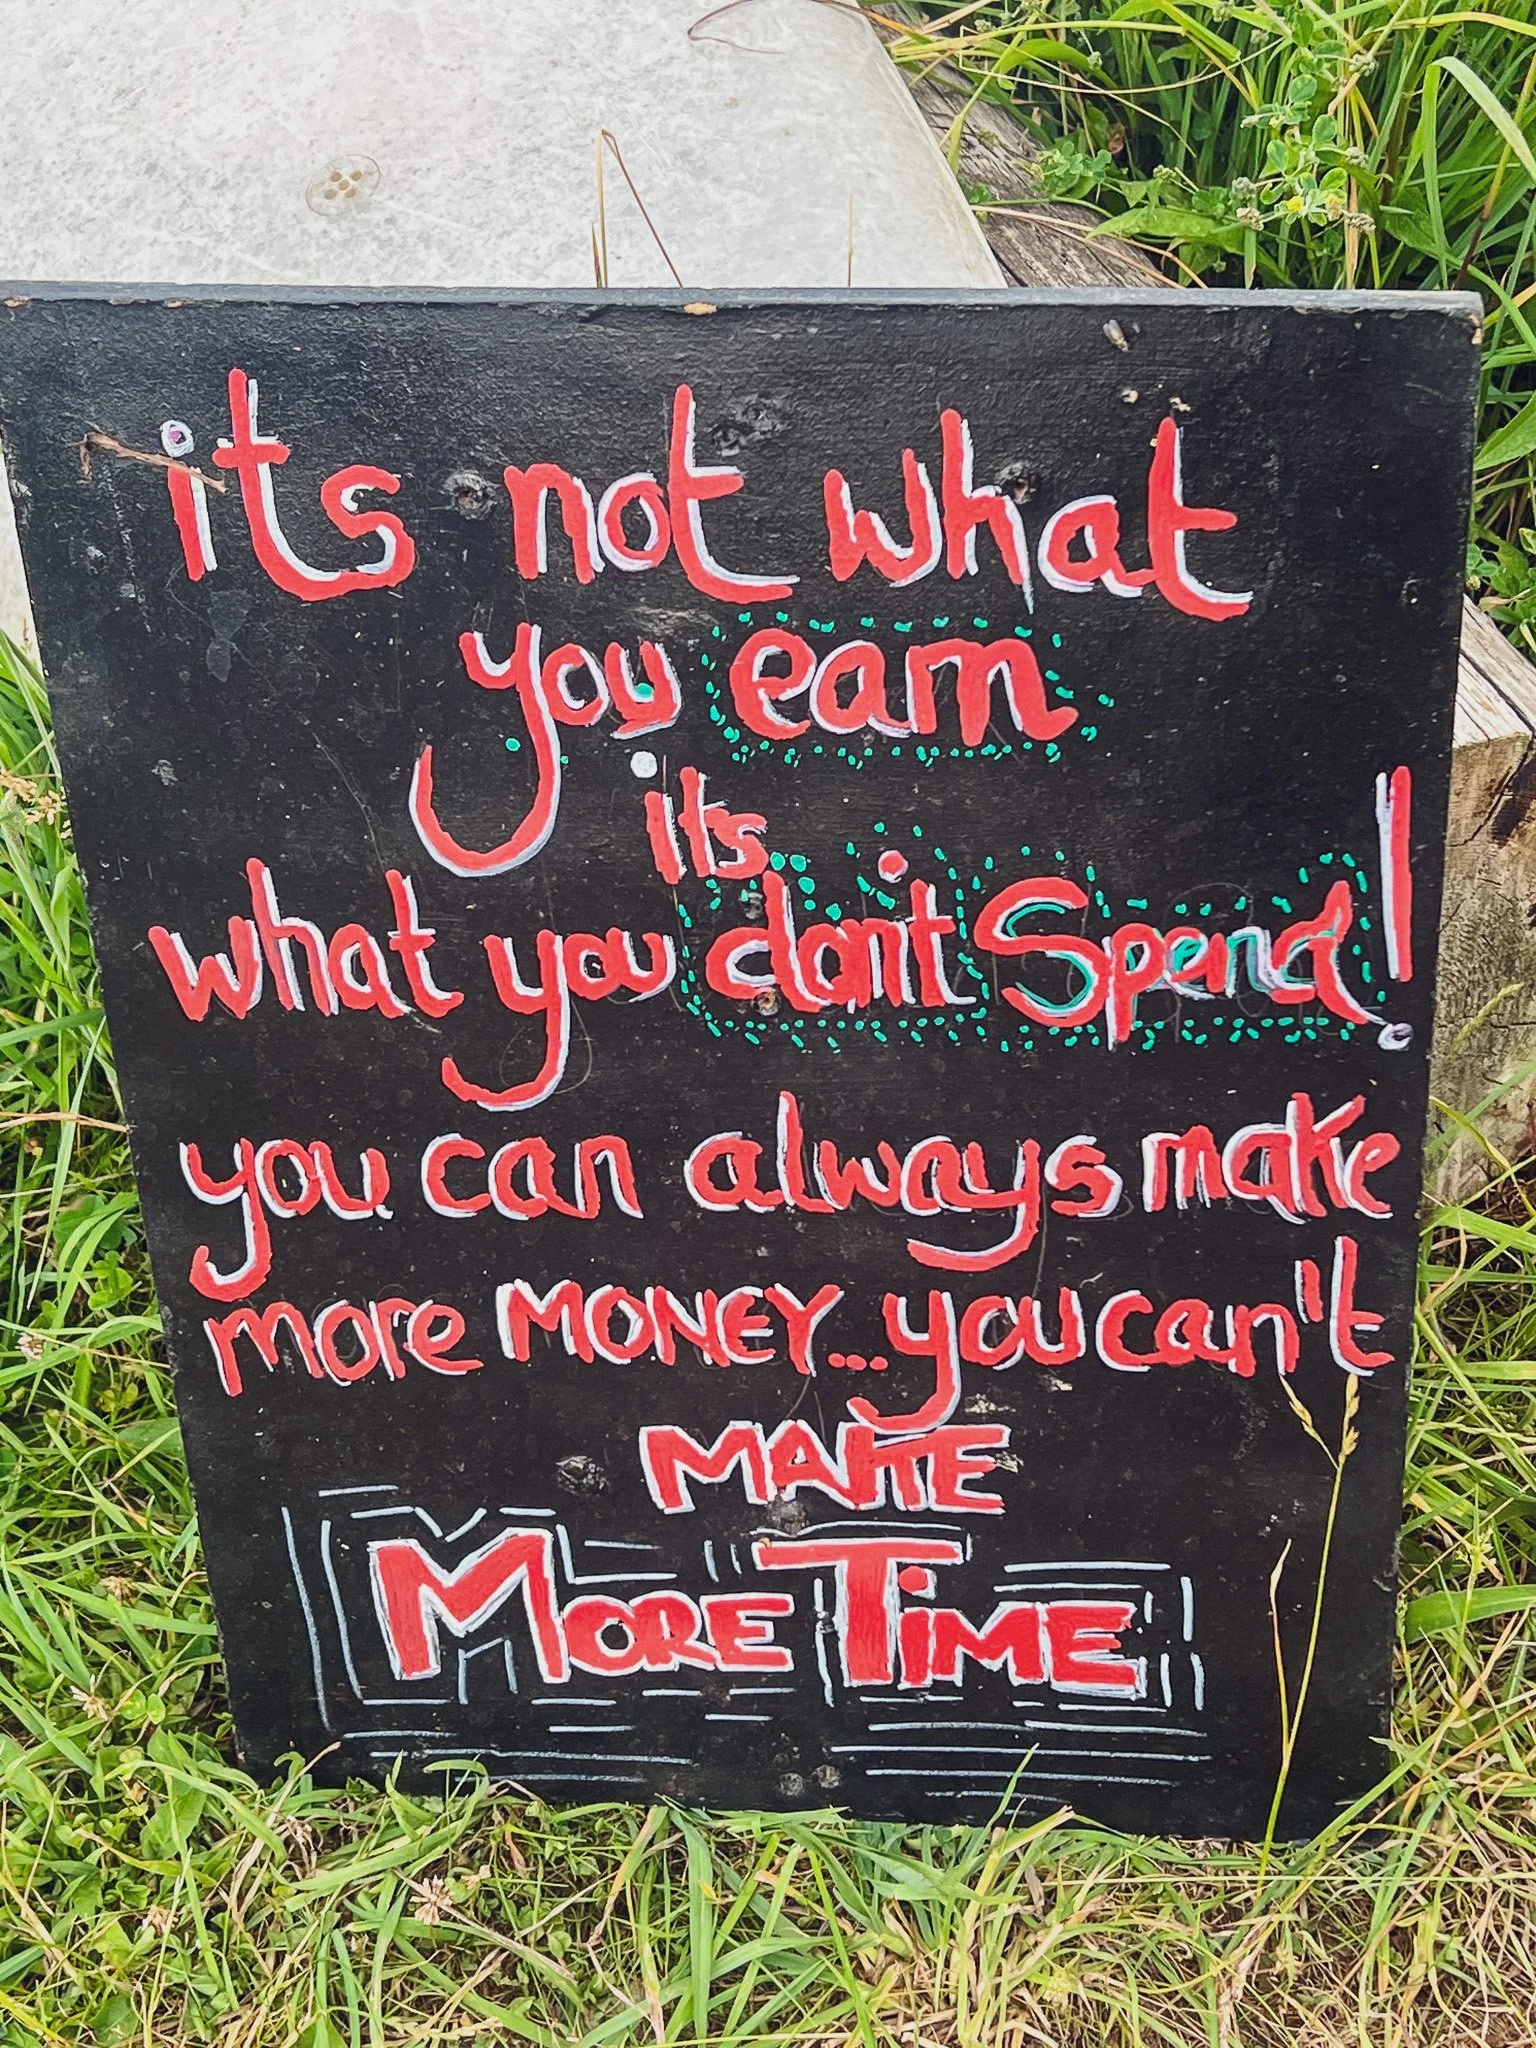 its not what
you earn
its
what you don't Spend!
you can always make
more MONEY... you can't
MAKE
MORE TiME